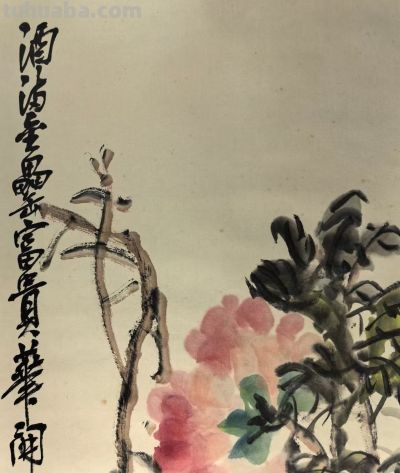 tuhuaba.com
酒沽金罍富貴華開